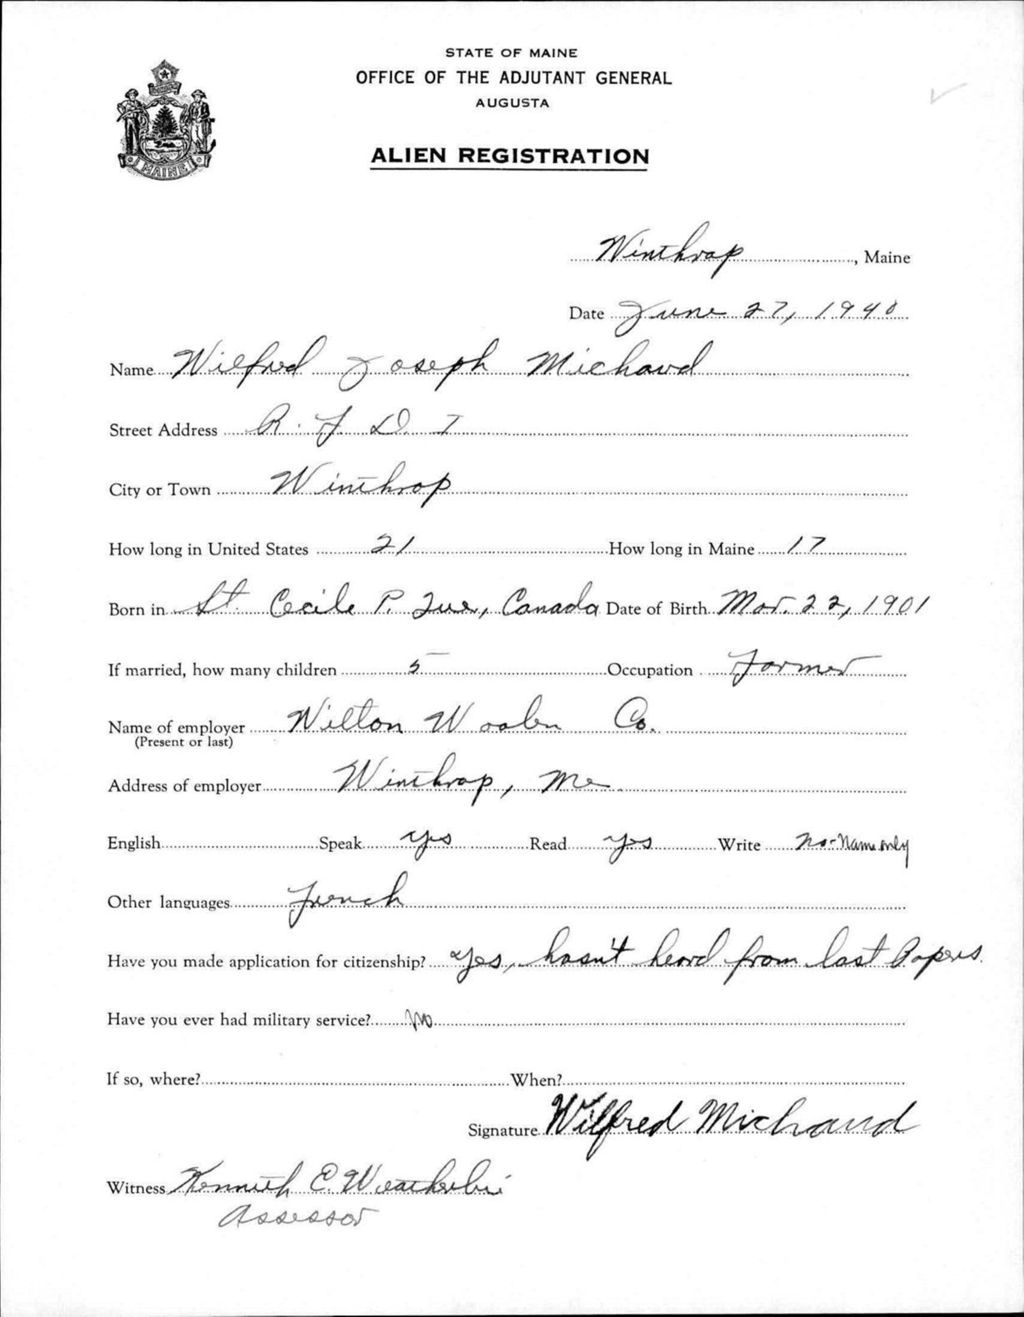 STATE OF MAINE
OFFICE OF THE ADJUTANT GENERAL
AUGUSTA
ALIEN REGISTRATION
MAINE
Winthrop, Maine
Date June 27, 1940
Name Wilfred Joseph Michaud
Street Address R. F. D. 1
City or Town Winthrop
How long in United States 21 How long in Maine 17
Born in St. Cecile P. Que, Canada Date of Birth Mar. 22, 1901
If married, how many children 5 Occupation Farmer
Name of employer Wilton Woolen Co.
(Present or last)
Address of employer Winthrop, Me
English Speak yes Read yes Write No-Name only
Other languages French
Have you made application for citizenship? yes, hasn't heard from last Papers.
Have you ever had military service? No
If so, where? When?
Signature Wilfred Michaud
Witness Kenneth E. Weatherbee
Assessor